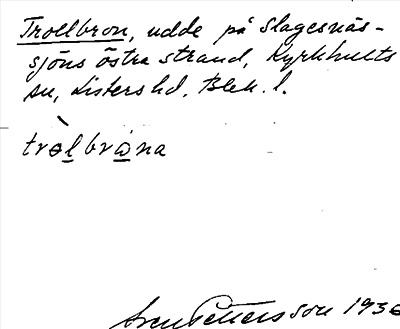 Trollbron, udde på Slagesnäs-
sjöns östra strand, Kyrkhults
sn, Listers hd, Blek. l.
tròlbrωna
Sven Pettersson 1936